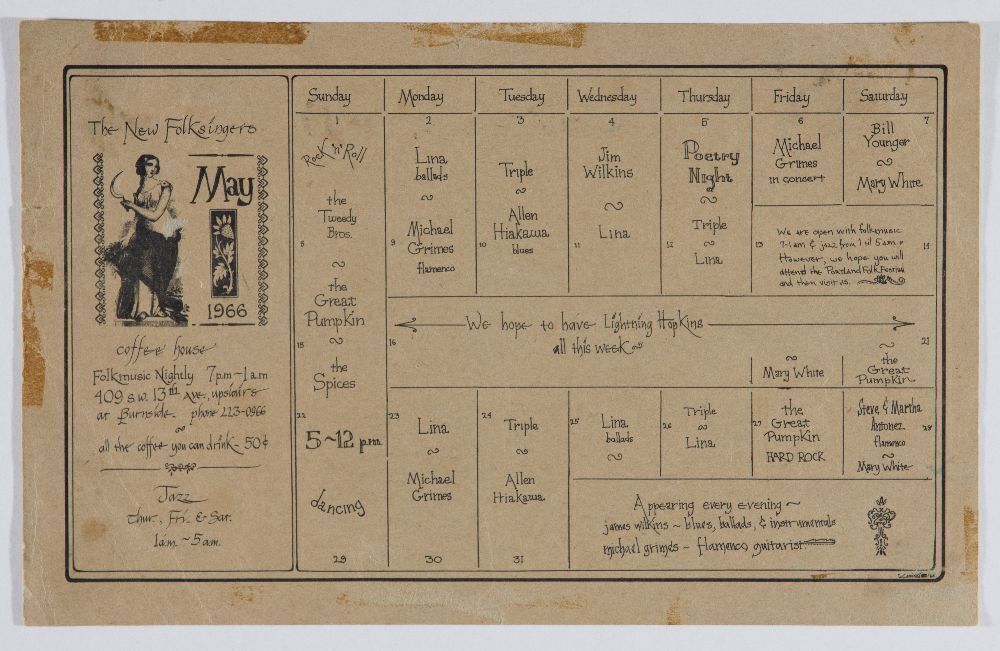 The New Folksingers
May
1966
coffee house
Folkmusic Nightly 7pm~1am
409 s.w. 13th Ave, upstairs
at Burnside phone 223-0966
all the coffee you can drink 50¢
Jazz
Thur, Fri. & Sat.
1am. ~ 5am.
Sunday Monday Tuesday Wednesday Thursday Friday Saturday
1
Rock 'n' Roll
the
Tweedy
Bros.
8
~
the
Great
Pumpkin
15
~
the
Spices
22
5~12 p.m.
dancing
29
2
Lina
ballads
~
9
Michael
Grimes
flamenco
3
Triple
~
10
Allen
Hiakawa
blues
4
Jim
Wilkins
~
11
Lina
5
Poetry
Night
~
Triple
12
~
Lina
6
Michael
Grimes
in concert
7
Bill
Younger
~
Mary White
13
14
We are open with folkmusic
7-1am & jazz from 1 til 5am
However, we hope you will
attend the Portland Folk Festival
and then visit us.
16
We hope to have Lightning Hopkins
all this week~
~
Mary White
21
~
the
Great
Pumpkin
23
Lina
~
Michael
Grimes
30
24
Triple
~
Allen
Hiakawa
31
25
Lina
ballads
~
26
Triple
~
Lina
27
the
Great
Pumpkin
HARD ROCK
28
Steve & Martha
Antonez
flamenco
~
Mary White
Appearing every evening ~
james wilkins ~ blues, ballads, & instrumentals
michael grimes - flamenco guitarist